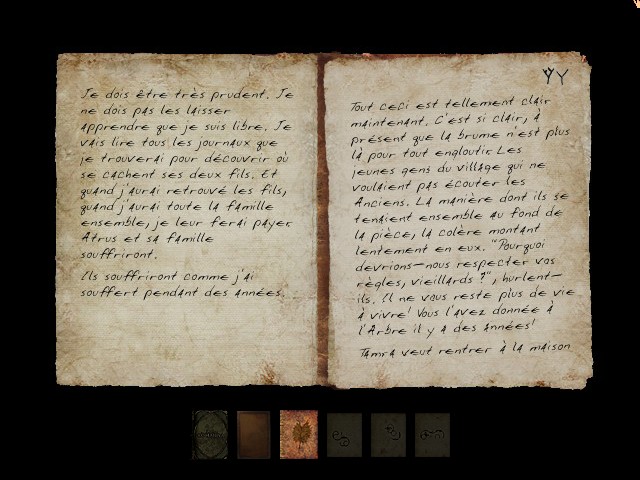 Je dois être très prudent. Je
ne dois pas les laisser
apprendre que je suis libre. Je
vais lire tous les journaux que
je trouverai pour découvrir où
se cachent ses deux fils. Et
quand j'aurai retrouvé les fils,
quand j'aurai toute la famille
ensemble, je leur ferai payer.
Atrus et sa famille
souffriront.
Ils souffriront comme j'ai
souffert pendant des années.
Tout ceci est tellement clair
maintenant. C'est si clair, à
présent que la brume n'est plus
là pour tout engloutir. Les
jeunes gens du village qui ne
voulaient pas écouter les
Anciens. La manière dont ils se
tenaient ensemble au fond de
la pièce, la colère montant
lentement en eux. "Pourquoi
devrions-nous respecter vos
règles, vieillards ?", hurlent-
ils. Il ne vous reste plus de vie
à vivre! Vous l'avez donnée à
l'Arbre il y a des années!
Tamra veut rentrer à la maison